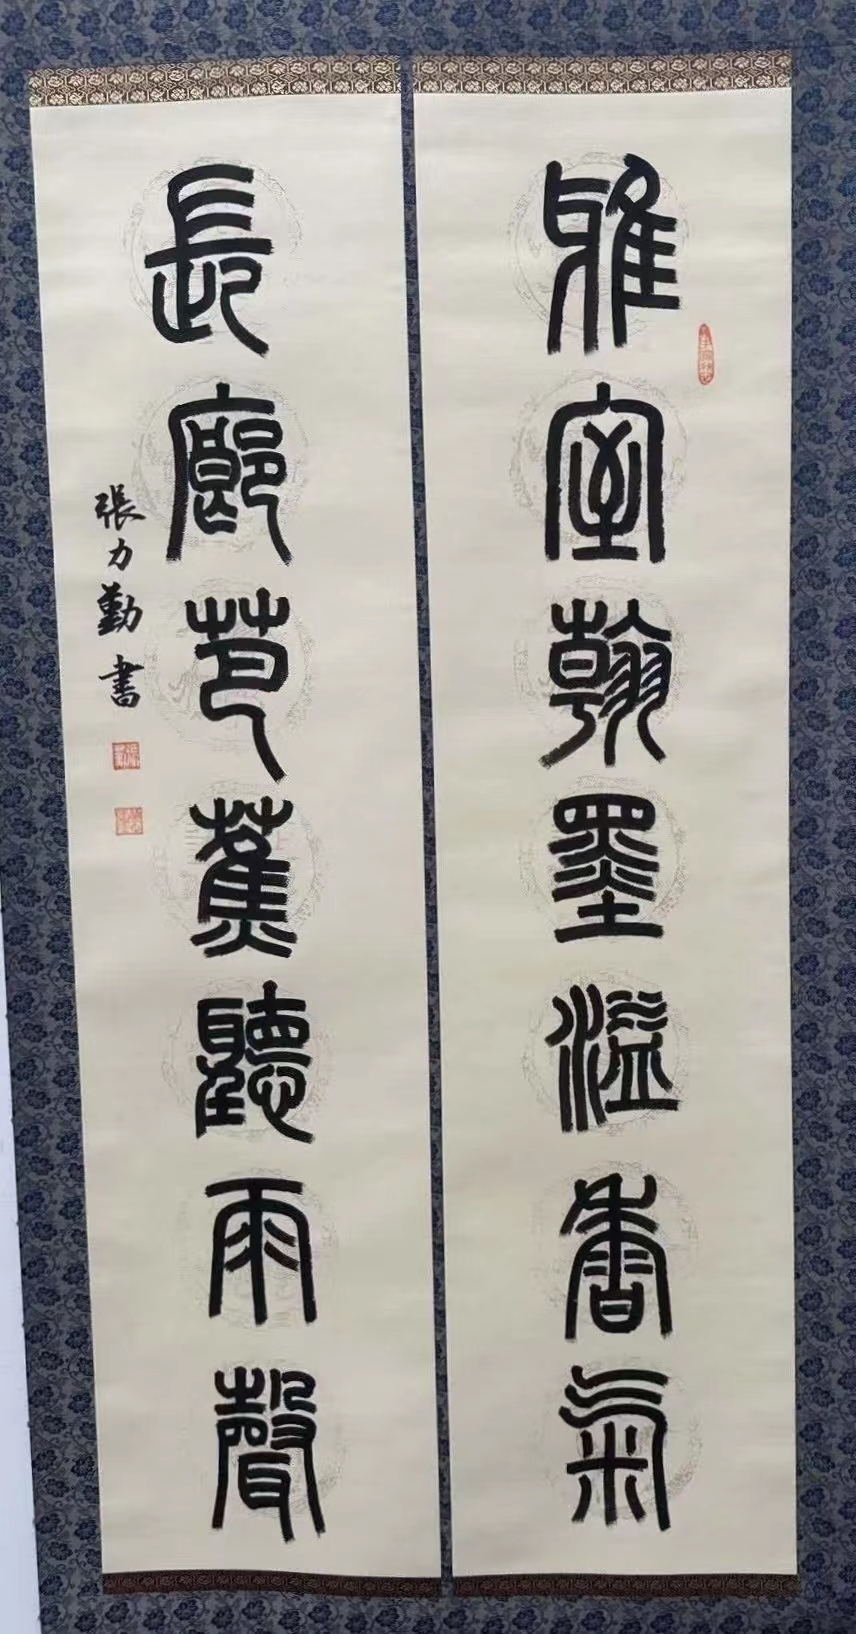 雅室翰墨溢香气
長廊芭蕉聽雨聲
張力勤書